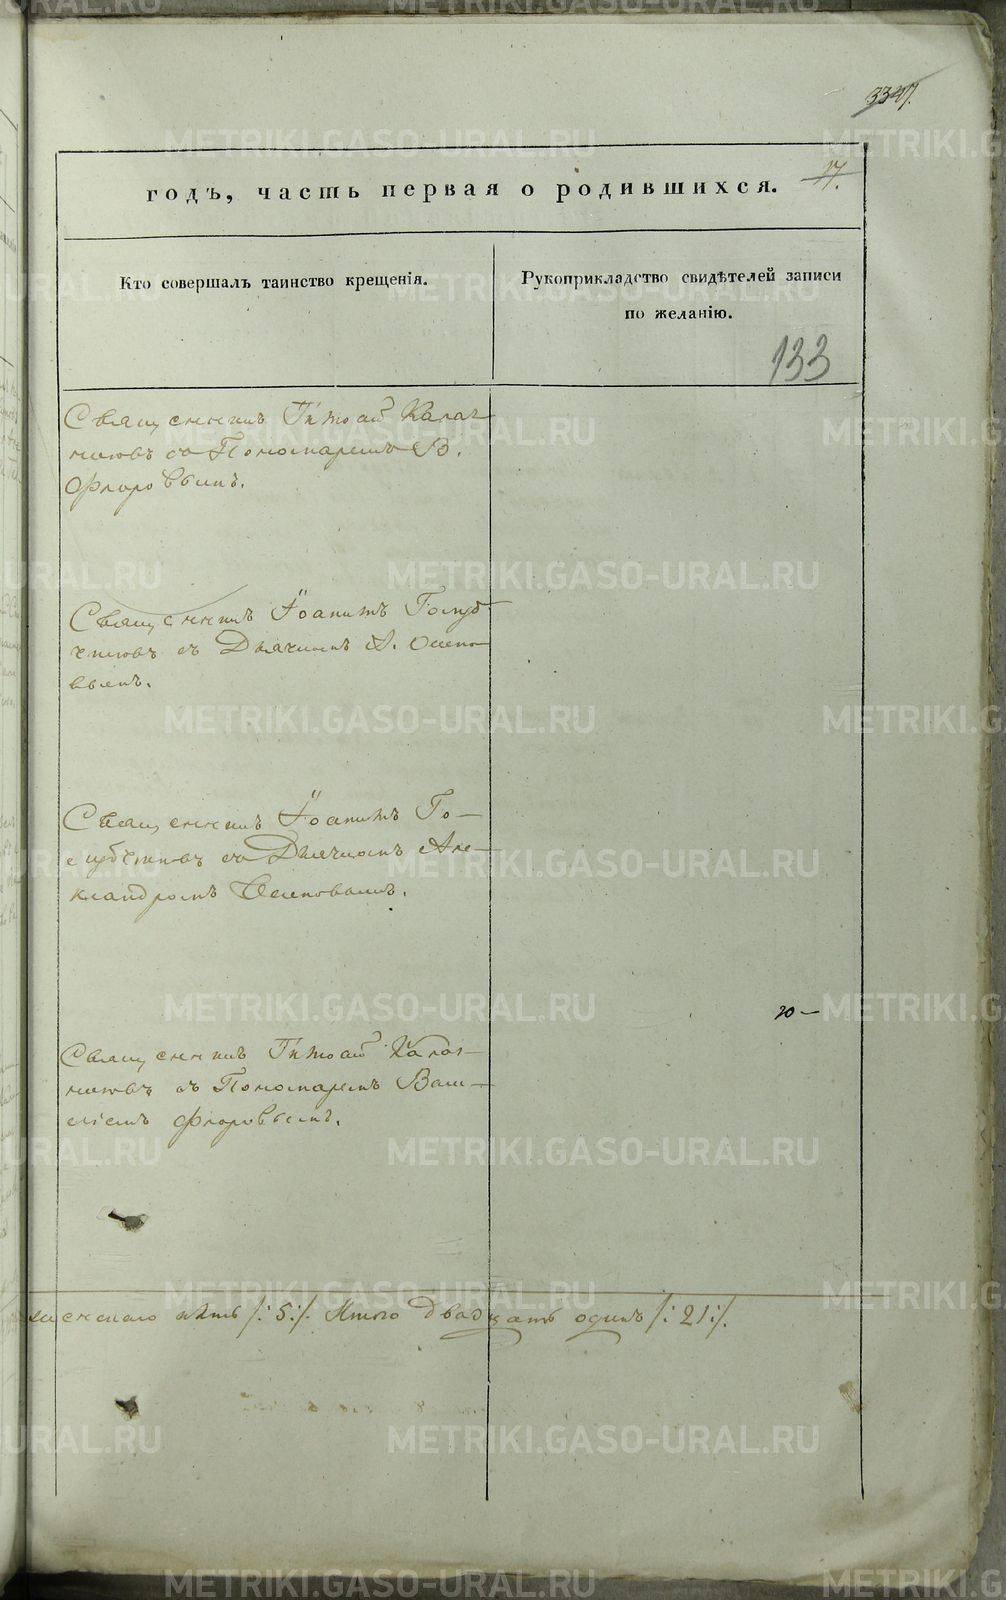 3347.
17.
годъ, часть первая о родившихся.
Кто совершалъ таинство крещенія.
Рукоприкладство свидѣтелей записи
по желанію.
133
Священникъ Калаш-
никовъ съ Пономаремъ В.
Флоровымъ.
Священникъ Іоаннъ Голуб-
чиковъ съ Дьячкомъ А. Осипо-
вымъ.
Священникъ Іоаннъ Го-
лубчиковъ съ Дьячкомъ Але-
ксандромъ Осиповымъ.
20-
Священникъ
съ Пономаремъ Васи-
ліемъ Флоровымъ.
женскаго пять /:5:/. Итого двадцать одинъ /:21:/.
METRIKI.GASO-URAL.RU